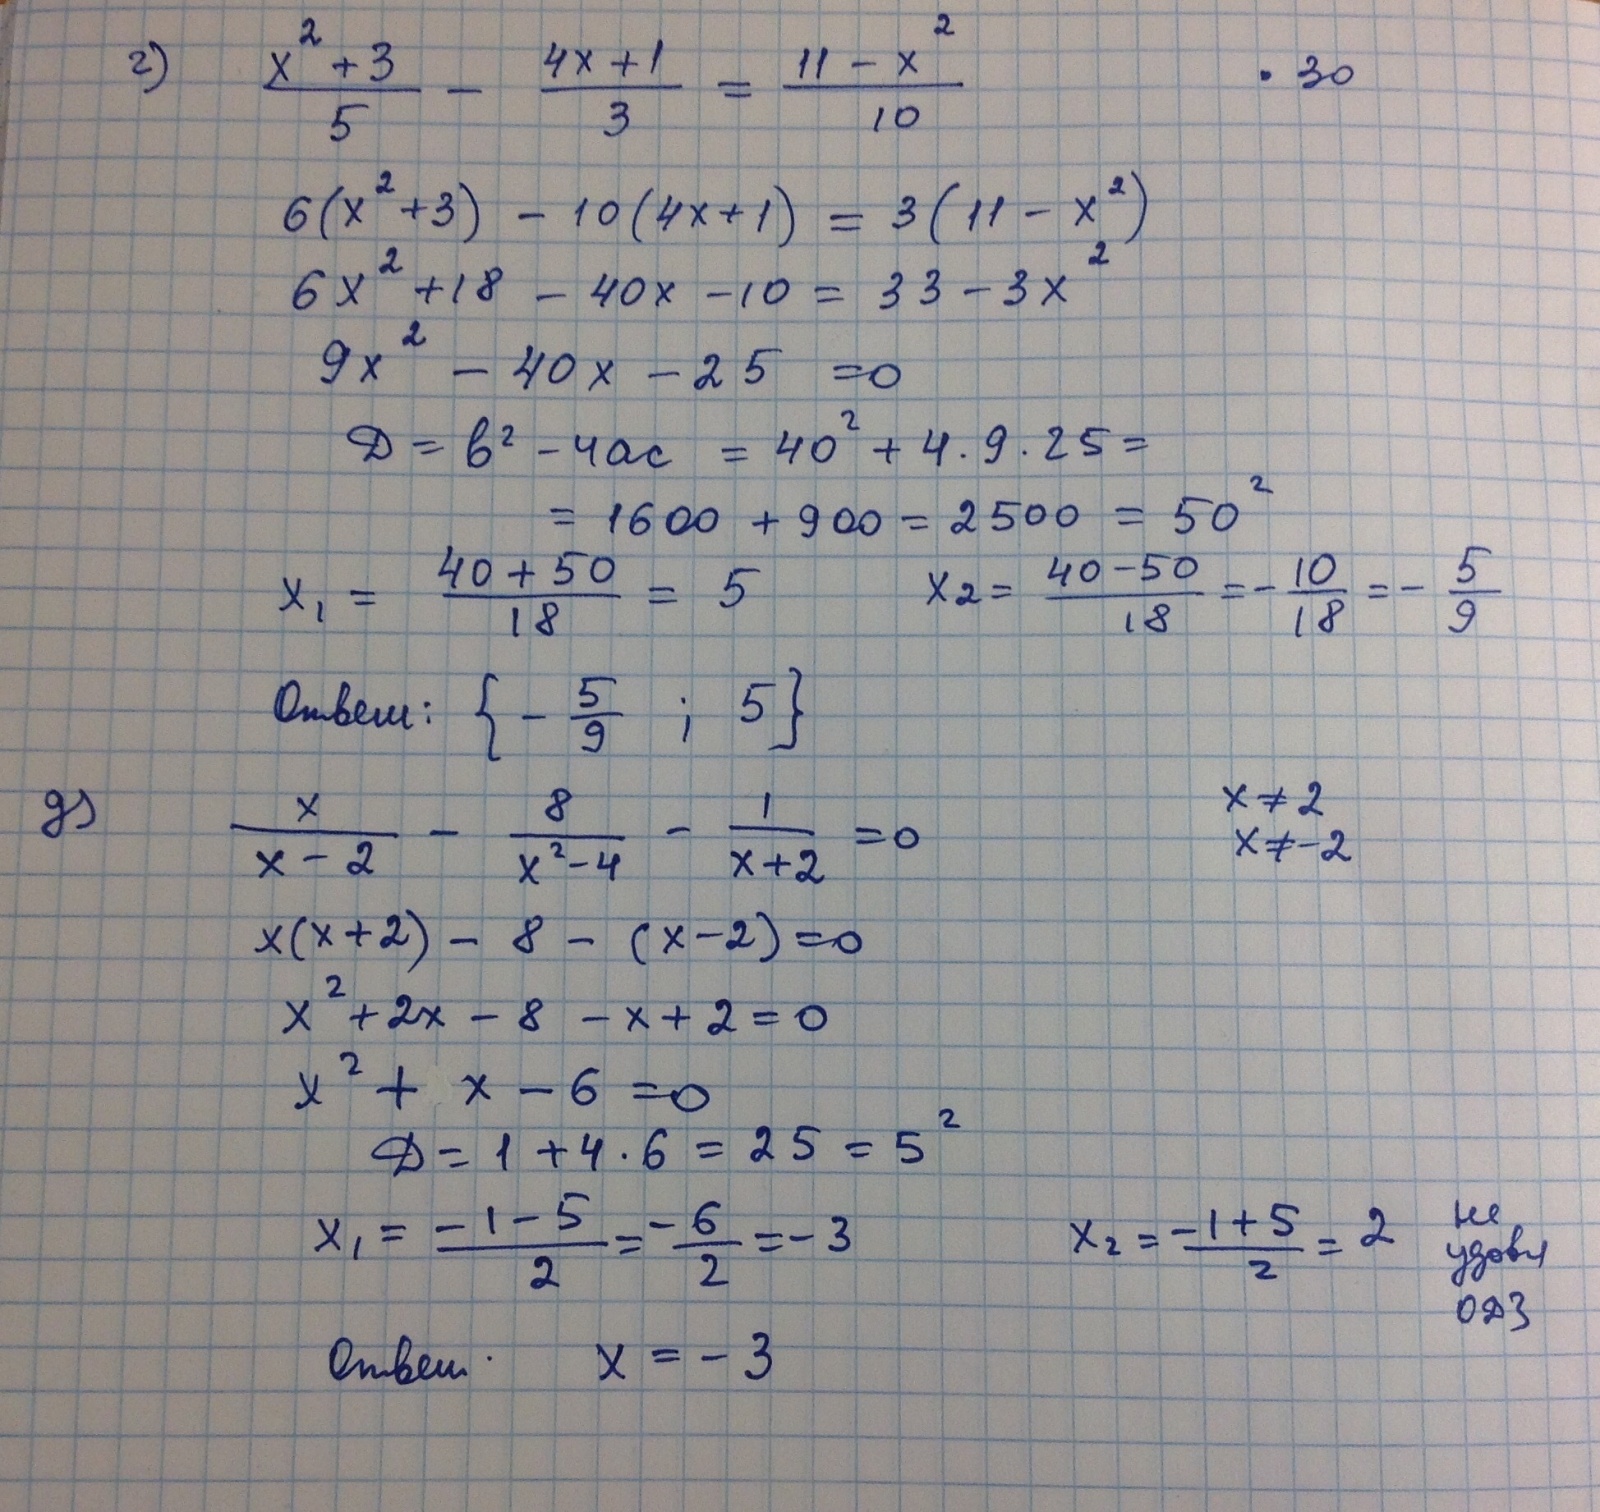 г) (x² + 3)/5 - (4x + 1)/3 = (11 - x²)/10 · 30
6(x² + 3) - 10(4x + 1) = 3(11 - x²)
6x² + 18 - 40x - 10 = 33 - 3x²
9x² - 40x - 25 = 0
D = b² - 4ac = 40² + 4 · 9 · 25 =
= 1600 + 900 = 2500 = 50²
x₁ = (40 + 50)/18 = 5 x₂ = (40 - 50)/18 = - 10/18 = - 5/9
Ответ: {- 5/9 ; 5}
д) x/(x - 2) - 8/(x² - 4) - 1/(x + 2) = 0 x ≠ 2
x ≠ -2
x(x + 2) - 8 - (x - 2) = 0
x² + 2x - 8 - x + 2 = 0
x² + x - 6 = 0
D = 1 + 4 · 6 = 25 = 5²
x₁ = (-1 - 5)/2 = -6/2 = -3 x₂ = (-1 + 5)/2 = 2 не
удовл
ОДЗ
Ответ. x = -3